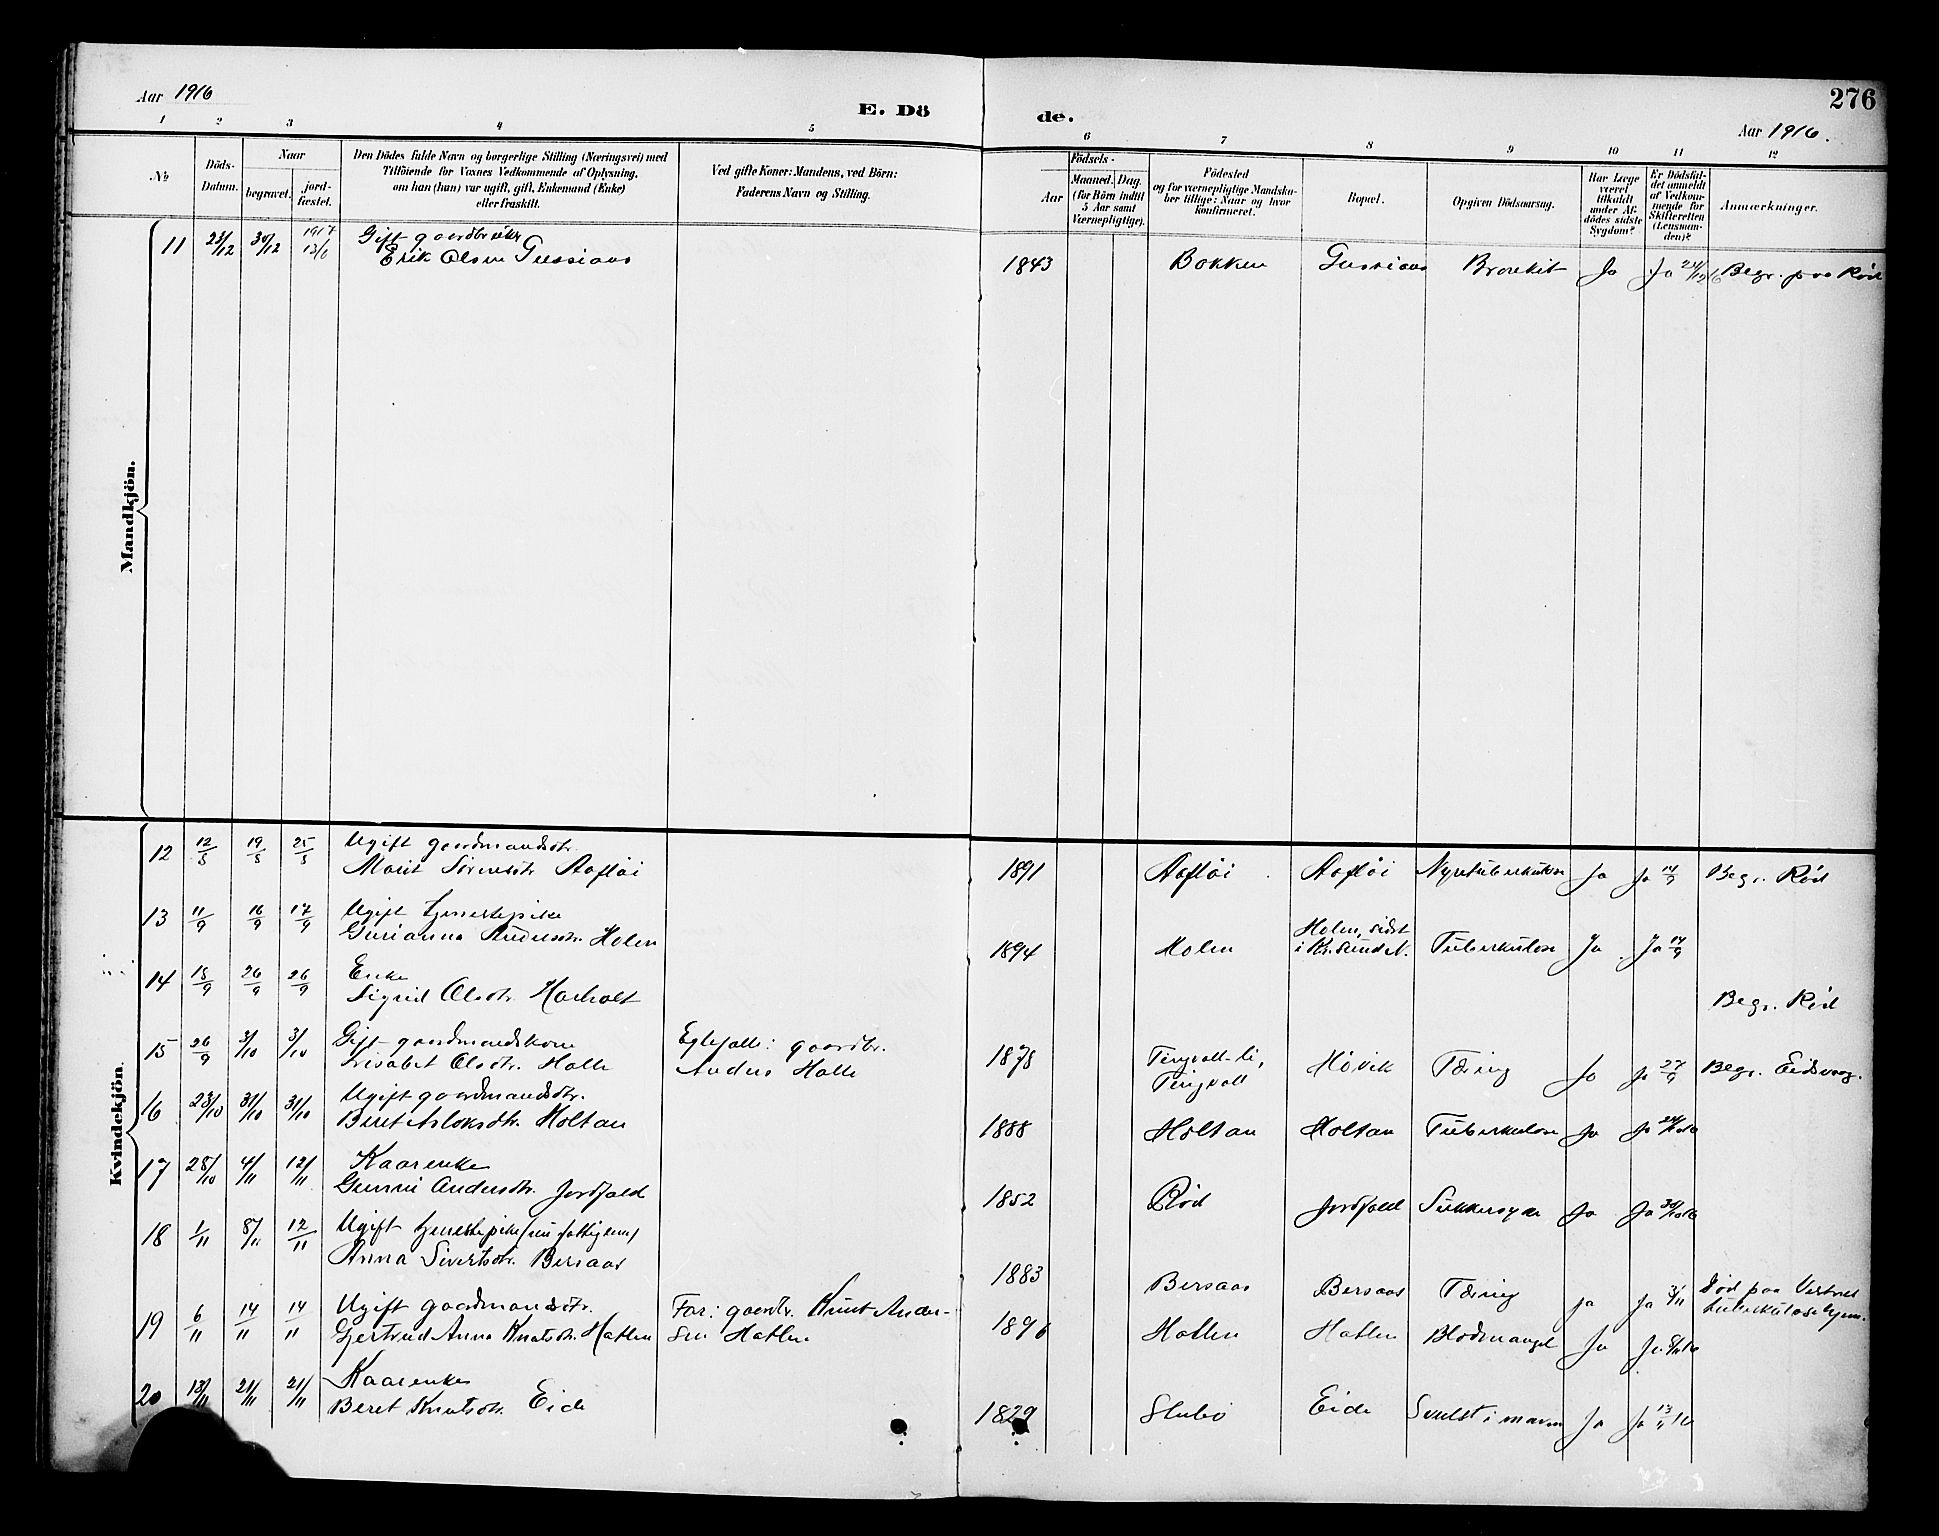 Aar 1916
E. Dö
de.
276
Aar 1916.
1 2 3 4 5 6 7 8 9 10 11 12
No
Döds-
Datum.
Naar
begravet.
jord-
fæstet.
Den Dödes fulde Navn og borgerlige Stilling (Næringsvei) med
Tilföiende for Voxnes Vedkommende af Oplysning,
om han (hun) var ugift, gift, Enkemand (Enke)
eller fraskilt.
Ved gifte Koner: Mandens, ved Börn:
Faderens Navn og Stilling.
Födsels-
Aar
Maaned. Dag.
(for Börn indtil
5 Aar samt
Værnepligtige).
Födested
og for værnepligtige Mandska-
ber tillige: Naar og hvor
konfirmeret.
Bopæl.
Opgiven Dödsaarsag.
Har Læge
været
tilkaldt
under Af-
dödes sidste
Sygdom?
Er Dödsfal-
det anmeldt
af Vedkom-
mende for
Skifteretten
(Lensman-
den)?
Anmærkninger.
Mandkjön.
11 23/12 30/12 1917
Gift gaardbruker
Erik Olsen Gussiaas
1843 Bakken Gussiaas Bronkit Ja Ja Begr. paa Rød
Kvindekjön.
12 12/5 19/5 25/5 Ugift gaardmandsdtr.
Marit Sørensdtr. Aafløi
1891 Aafløi Aafløi Nyretuberkulose Ja Ja Begr. Rød
13 11/9 16/9 17/9 Ugift tjenestepike
Gurianna Andersdtr. Holen
1894 Holen Holen, sidst
i Kr.sund N. Tuberkulose Ja Ja 14/9
14 18/9 26/9 26/9 Enke
Sigrid Olsdtr. Harholt
Begr. Rød
15 26/9 3/10 3/10 Gift gaardmandskone
Lisabet Olsdtr. Holle
Egtefalle: gaardbr.
Anders Holle
1878 Tingvoll-li,
Tingvoll Høvik Tæring Ja Ja 27/9 Begr. Eidsvaag.
16 23/10 31/10 31/10 Ugift gaardmandsdtr.
Beret Aslaksdtr. Holtan
1888 Holtan Holtan Tuberkulose Ja Ja
17 28/10 4/11 12/11 Kaarenke
Gunni Andersdtr. Jordfald
1852 Rød Jordfald Sukkersyke Ja Ja
18 1/11 8/11 12/11 Ugift tjenestepike (nu fattiglem)
Anna Sivertsdtr. Bersaas
1883 Bersaas Bersaas Tæring Ja Ja 3/11 Død paa Vestnes
tuberkulosehjem.
19 6/11 14/11 14/11 Ugift gaardmandsdtr.
Gjertrud Anna Knutsdtr. Hatlen
Far: gaardbr. Knut Ander-
sen Hatlen
1896 Hatlen Hatlen Blodmangel Ja Ja
20 13/11 21/11 21/11 Kaarenke
Beret Knutsdtr. Eide
1829 Stubø Eide Svulst i maven Ja Ja 13/11 16